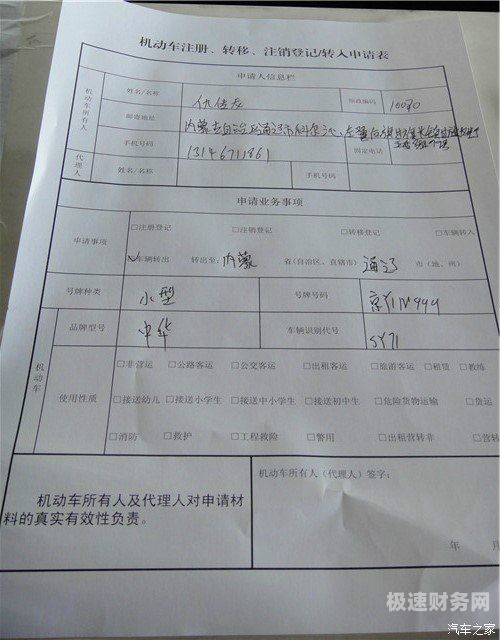 机动车注册、转移、注销登记/转入申请表
申请人信息栏
机动车所有人
姓名/名称
邮政编码
邮寄地址 内蒙古自治区通辽市科尔沁左翼后旗
手机号码 13146711861 固定电话
代理人
姓名/名称 手机号码
申请业务事项
申请事项
□注册登记 □注销登记 □转移登记 □车辆转入
☑车辆转出 转出至: 内蒙 省(自治区、直辖市) 通辽 市(地、州)
号牌种类 小型 号牌号码
机动车
品牌型号 中华 车辆识别代号
使用性质
□非营运 □公路客运 □公交客运 □出租客运 □旅游客运 □租赁 □教练
□接送幼儿 □接送小学生 □接送中小学生 □接送初中生 □危险货物运输 □货运
□消防 □救护 □工程救险 □警用 □出租营转非 □营转
机动车所有人及代理人对申请材
料的真实有效性负责。
机动车所有人(代理人)签字:
年 月
极速财务网
汽车之家